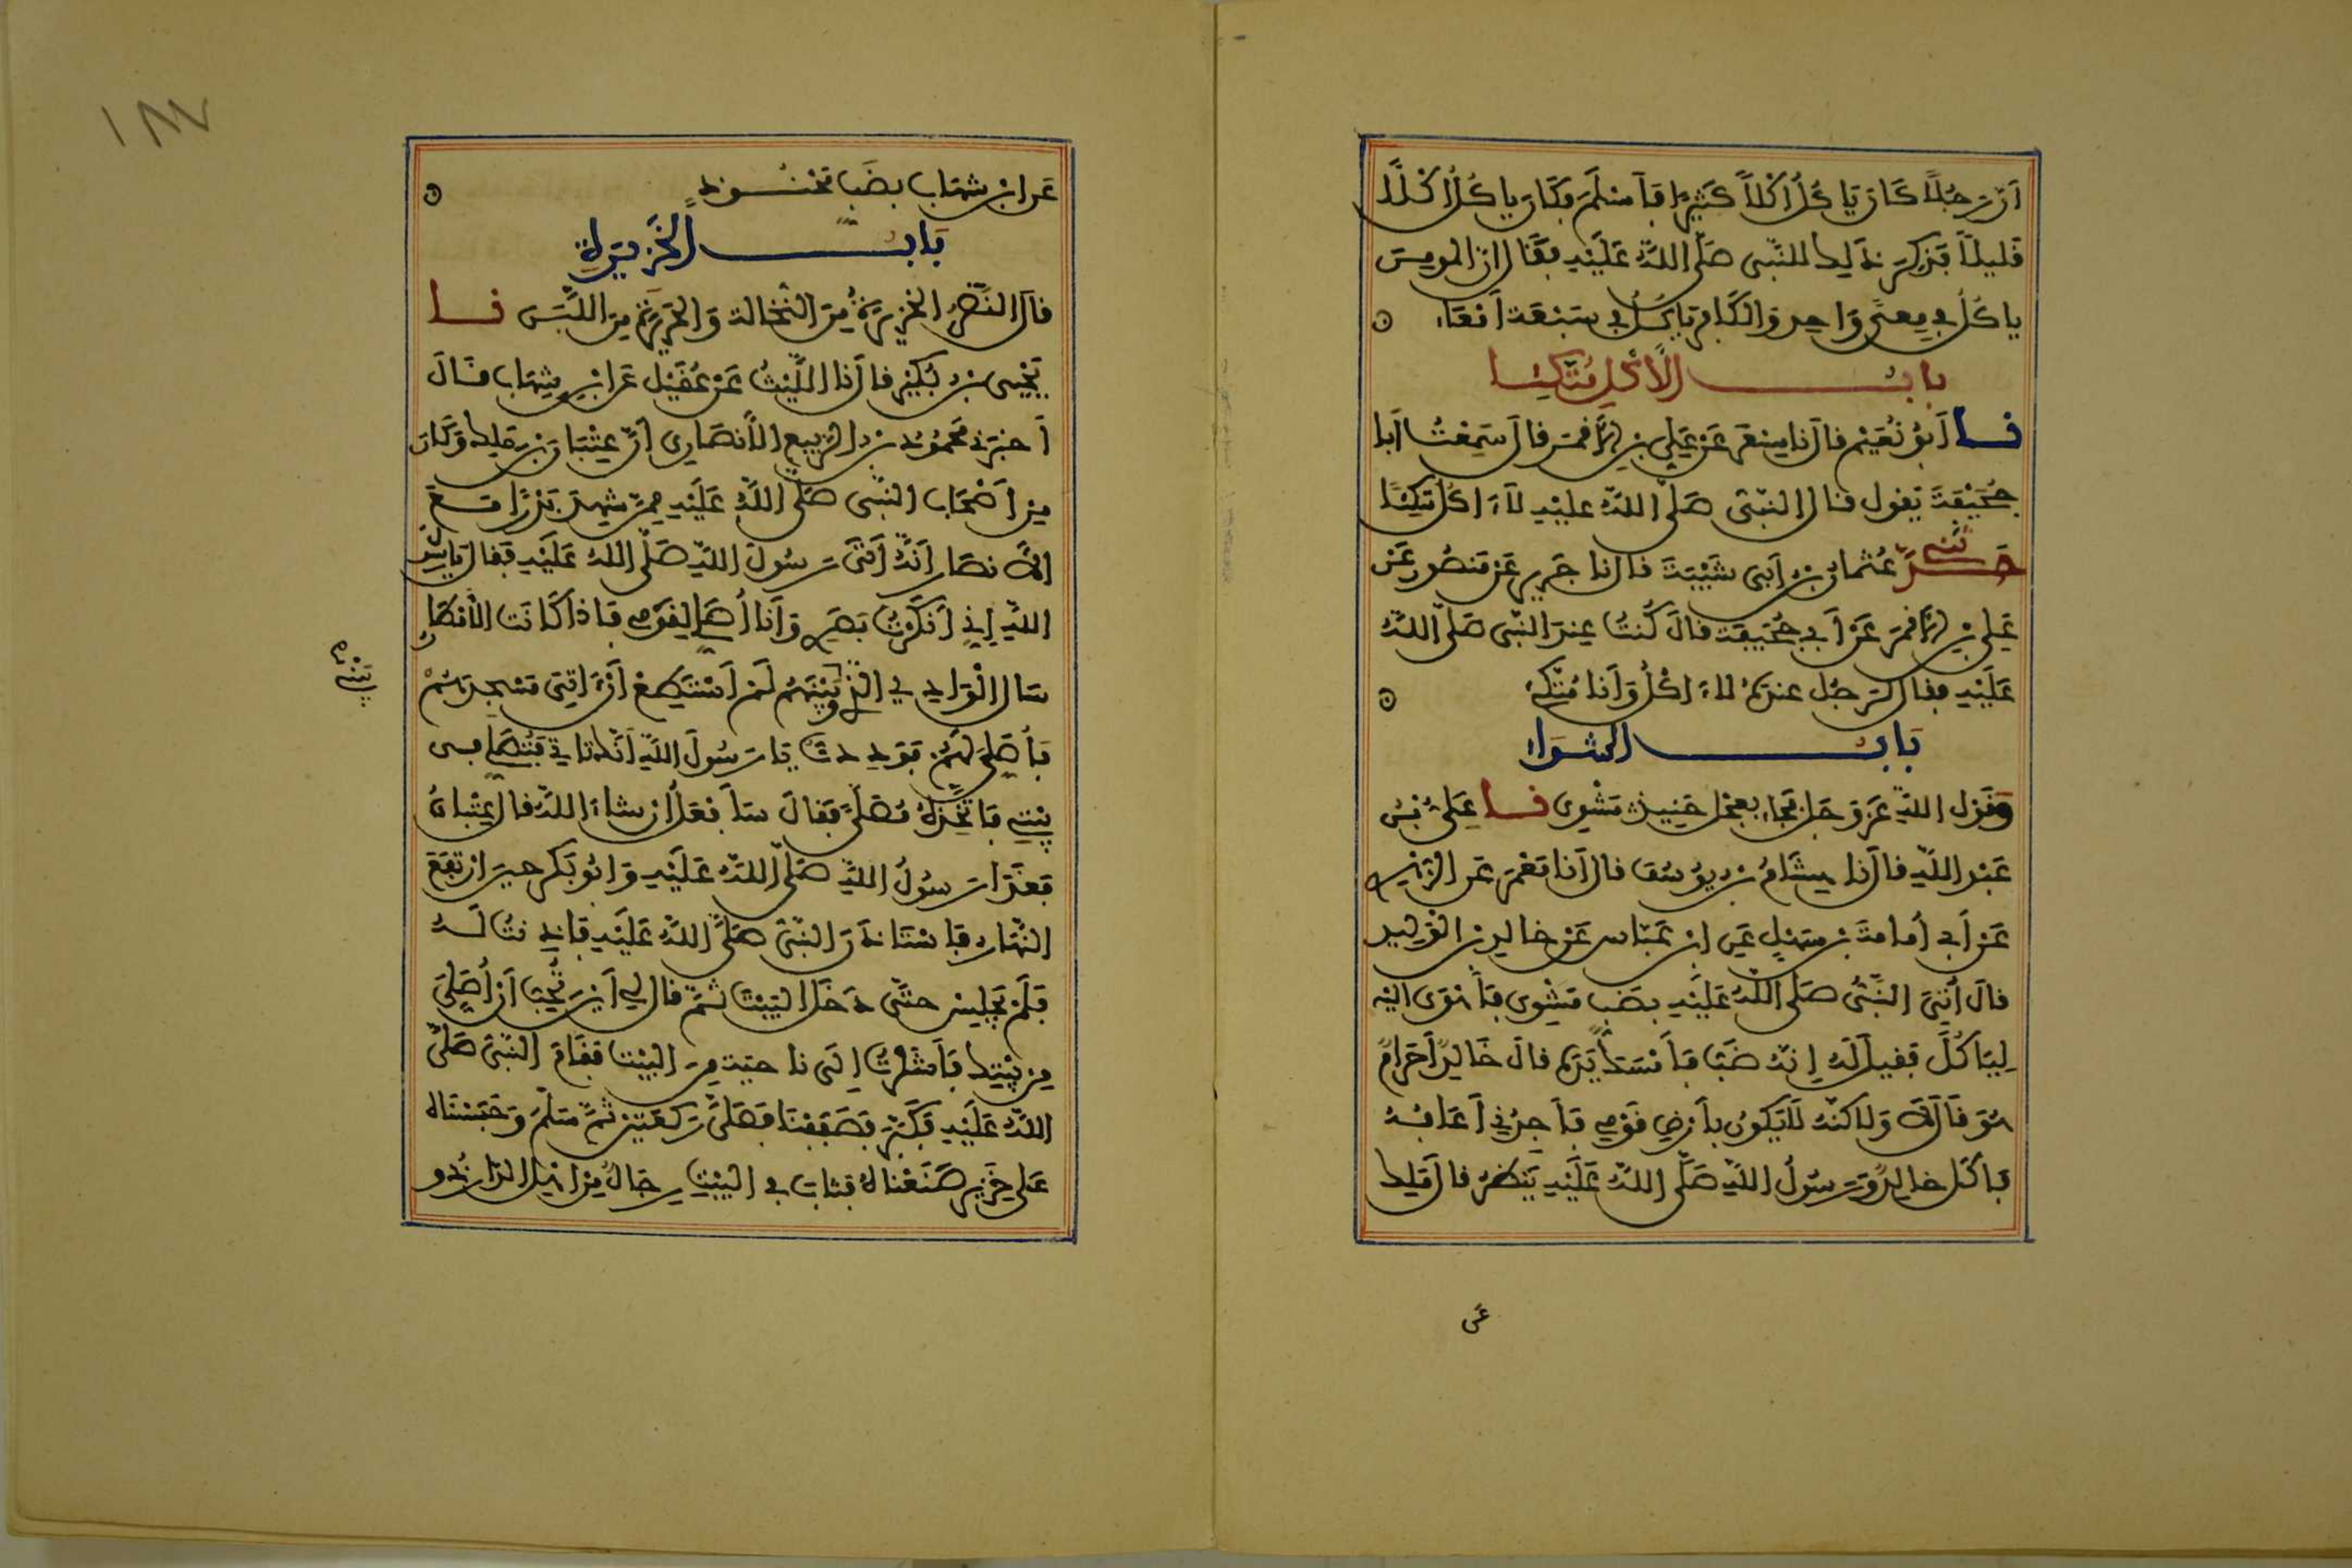 أن رجلا كان ياكل أكلا كثيرا فأسلم فكان ياكل أكلا
قليلا فذكر ذلك للنبى صلى الله عليه فقال إن المومن
ياكل في معى واحد والكافر ياكل في سبعة أمعاء
باب الأكل متكئا
نا أبو نعيم قال نا مسعر عن علي بن الأقمر قال سمعت أبا
جحيفة يقول قال النبى صلى الله عليه لا ءاكل متكئا
حدثني عثمان بن أبى شيبة قال نا جرير عن منصور عن
علي بن الأقمر عن أبي جحيفة قال كنت عند النبى صلى الله
عليه فقال لرجل عنده لا ءاكل وأنا متكئ
باب الشواء
وقول الله عز وجل فجاء بعجل حنيذ مشوى نا علي بن
عبد الله قال نا هشام بن يوسف قال أنا معمر عن الزهري
عن أبي أمامة بن سهل عن ابن عباس عن خالد بن الوليد
قال أتي النبى صلى الله عليه بضب مشوى فأهوى اليه
لياكل فقيل له إنه ضب فأمسك يده قال خالد أحرام
هو قال لا ولاكنه لا يكون بأرض قومي فأجدني أعافه
فأكل خالد ورسول الله صلى الله عليه ينظر قال ملك
عن
١٨٧
عن ابن شهاب بضب محنوذ
باب الخزيرة
قال النضر الخزيرة من النخالة والحريرة من اللبن نا
يحيى بن بكير قال نا الليث عن عقيل عن ابن شهاب قال
أخبرني محمود بن الربيع الأنصاري أن عتبان بن ملك وكان
من أصحاب النبى صلى الله عليه ممن شهد بدرا من
الأنصار أنه أتى رسول الله صلى الله عليه فقال يا رسول
الله إني أنكرت بصري وأنا أصلي لقومي فإذا كانت الأمطار
سال الوادي الذي بيني وبينهم لم أستطع أن ءاتي مسجدهم
بيني
فأصلي لهم فوددت يا رسول الله أنك تاتي فتصلي في
بيتي فأتخذه مصلى فقال سأفعل إن شاء الله قال عتبان
فغدا رسول الله صلى الله عليه وأبو بكر حين ارتفع
النهار فاستاذن النبى صلى الله عليه فأذنت له
فلم يجلس حتى دخل البيت ثم قال لي أين تحب أن أصلي
من بيتك فأشرت إلى ناحية من البيت فقام النبى صلى
الله عليه فكبر فصففنا فصلى ركعتين ثم سلم وحبسناه
على خزير صنعناه فثاب في البيت رجال من أهل الدار ذوو